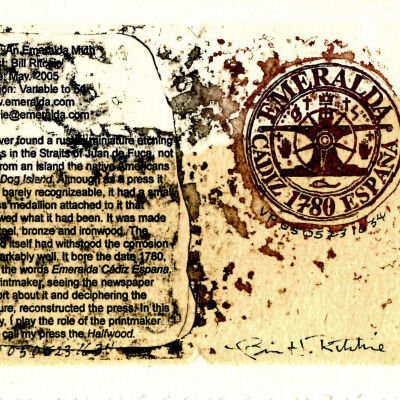 An Emeralda Myth
t: Bill Ritchie
e: May, 2005
ion: Variable to 54
w.emeralda.com
ie@emeralda.com
ver found a rusty miniature etching
s in the Straits of Juan de Fuca, not
rom an island the native Americans
Dog Island. Although as a press it
barely recognizeable, it had a small
ss medallion attached to it that
wed what it had been. It was made
teel, bronze and ironwood. The
d itself had withstood the corrosion
arkably well. It bore the date 1780,
the words Emeralda Cádiz Espana.
rintmaker, seeing the newspaper
ort about it and deciphering the
ure, reconstructed the press. In this
y, I play the role of the printmaker
call my press the Halfwood.
EMERALDA
CÁDIZ 1780 ESPAÑA